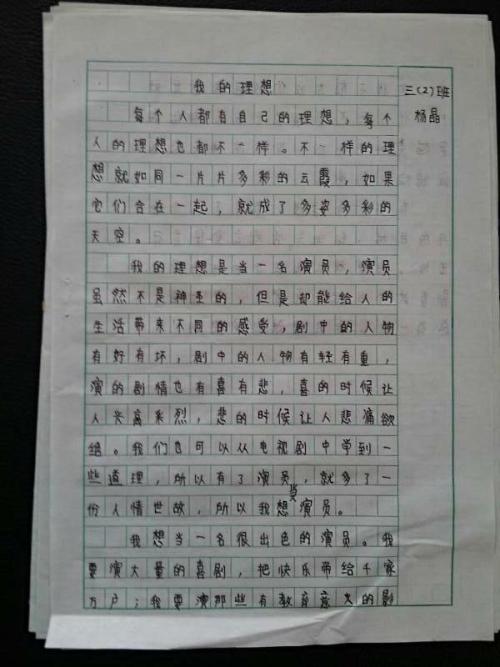 我的理想
三(2)班
杨晶
每个人都有自己的理想，每个
人的理想也都不一样。不一样的理
想就如同一片片多彩的云霞，如果
它们合在一起，就成了多姿多彩的
天空。
我的理想是当一名演员，演员
虽然不是神圣的，但是却能给人的
生活带来不同的感受，剧中的人物
有好有坏，剧中的人物有轻有重，
演的剧情也有喜有悲，喜的时候让
人兴高采烈，悲的时候让人悲痛欲
绝。我们也可以从电视剧中学到一
些道理，所以有了演员，就多了一
份人情世故，所以我想当演员。
我想当一名很出色的演员。我
要演大量的喜剧，把快乐带给千家
万户；我要演那些有教育意义的影